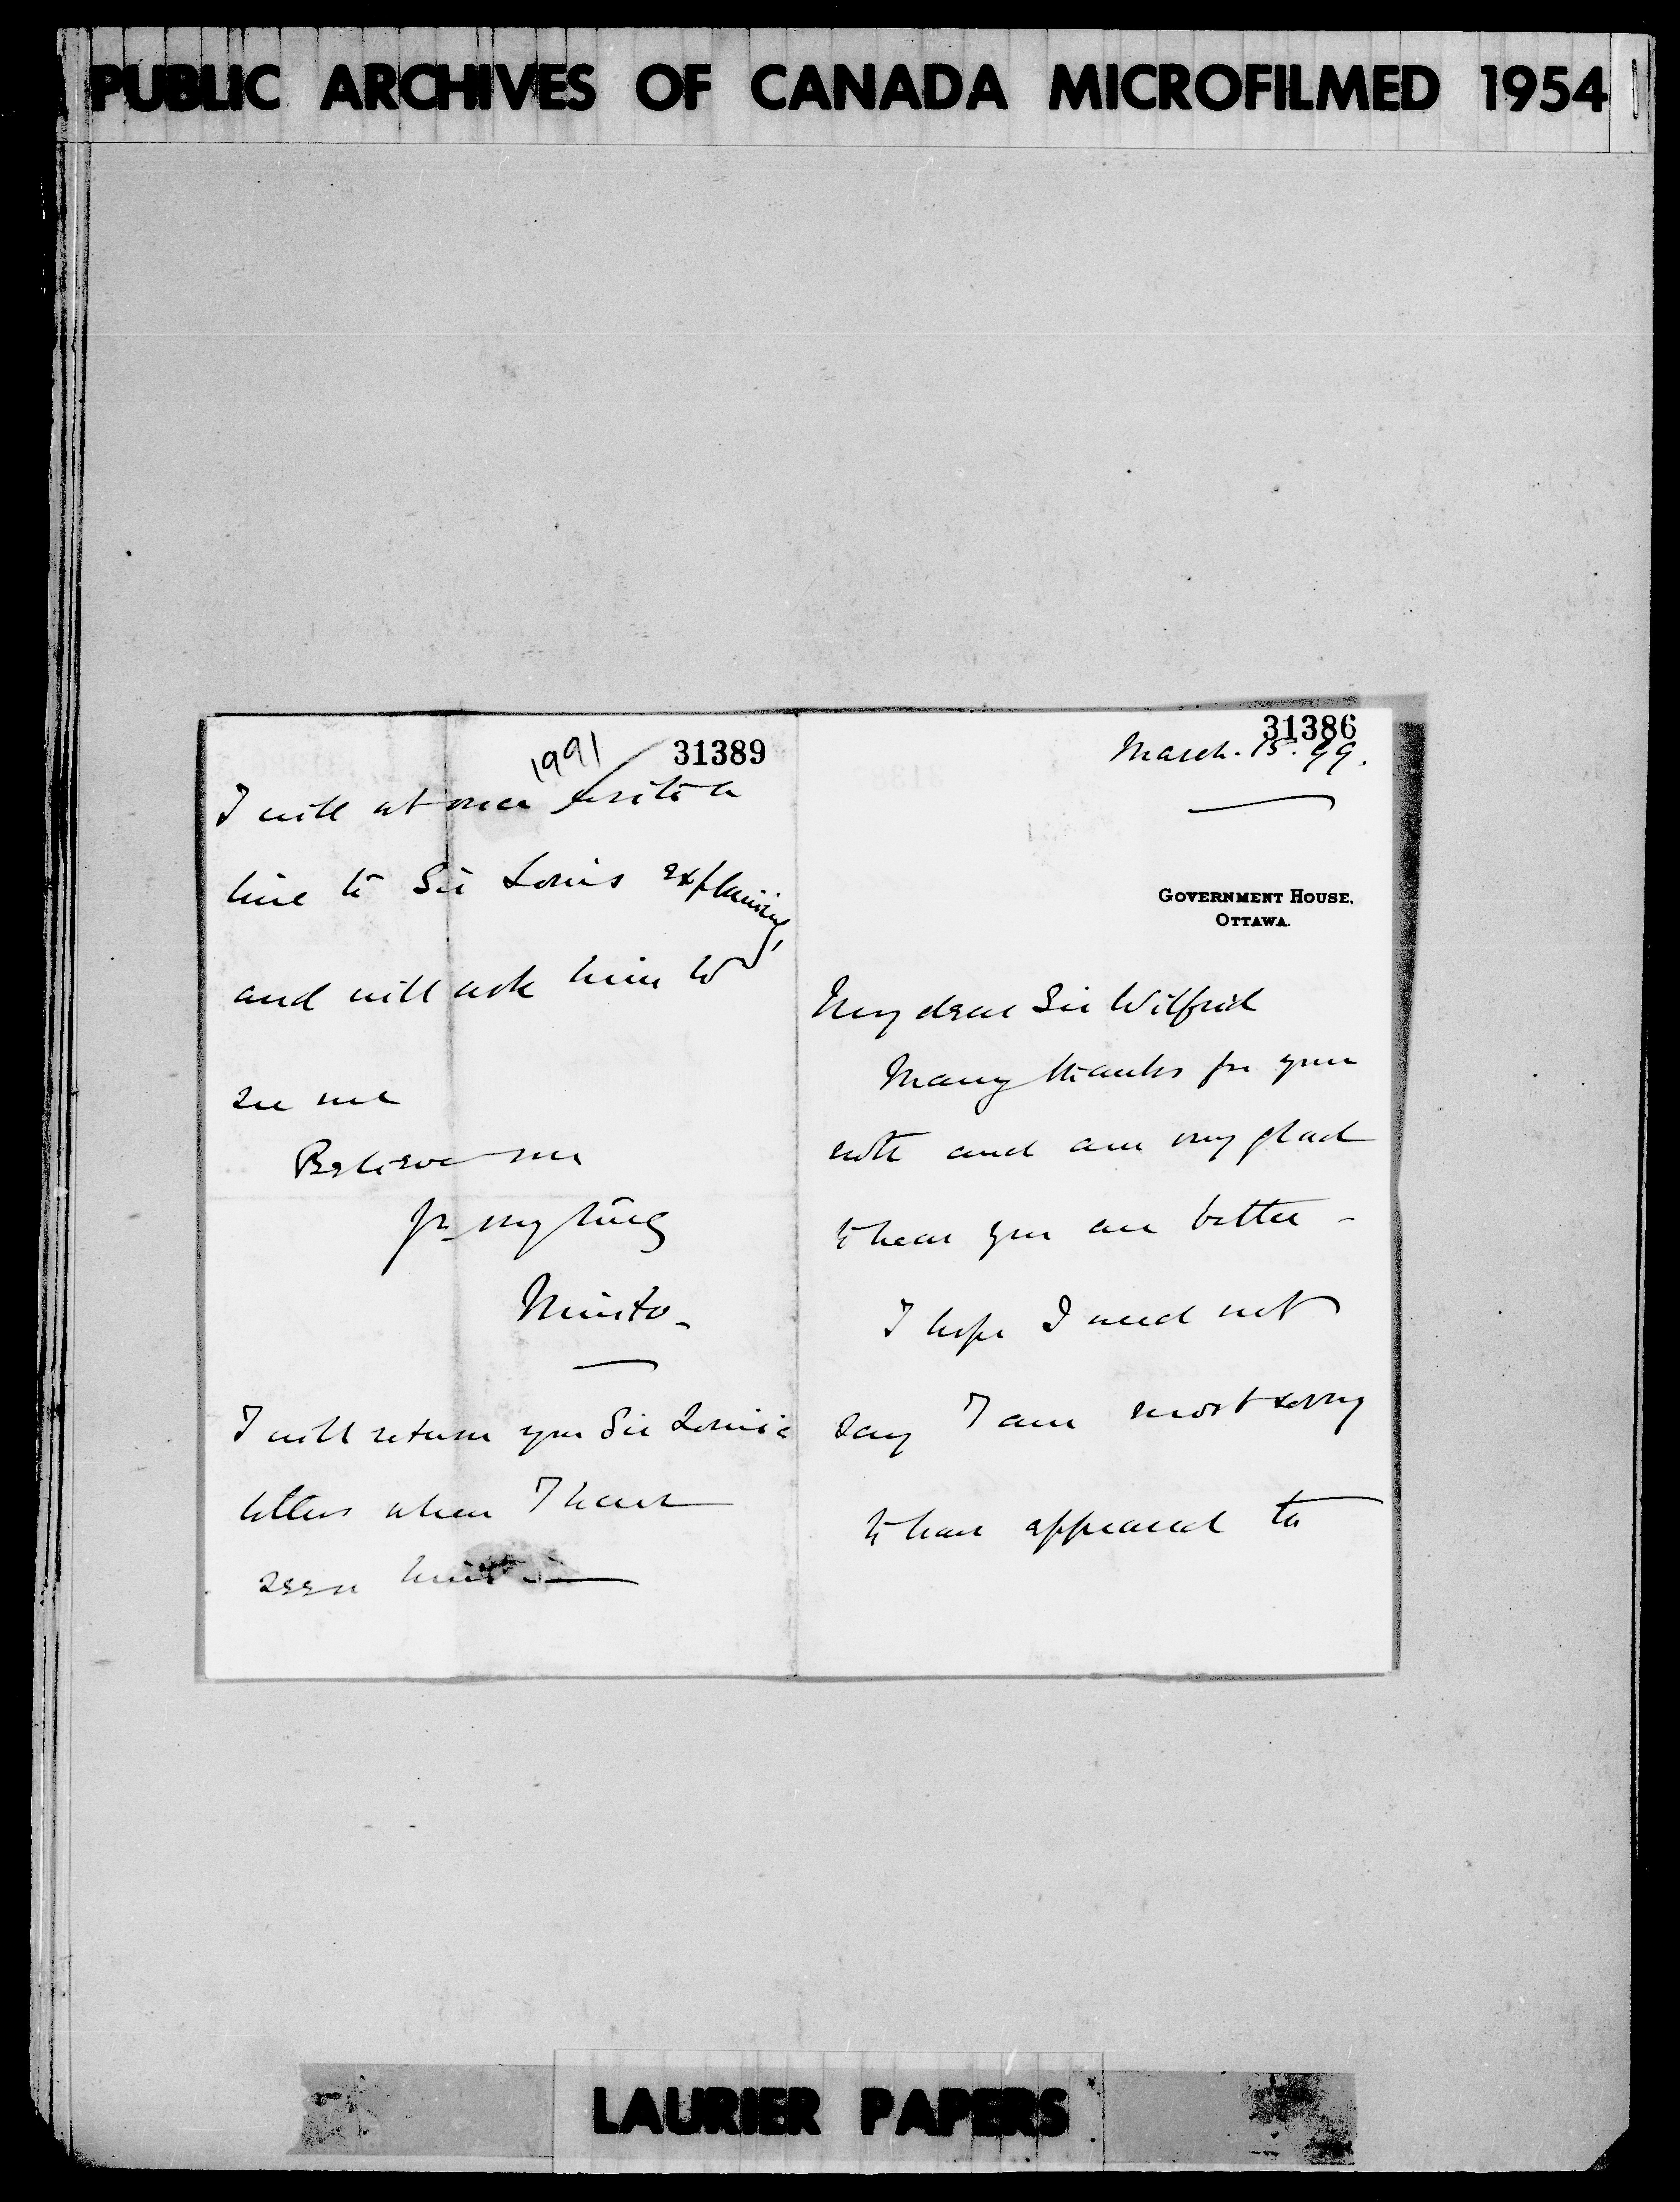 PUBLIC ARCHIVES OF CANADA MICROFILMED 1954
31389
1991
I will at once write a
line to Sir Louis explaining,
and will ask him to
see me
Believe me
Yrs very truly
Minto_
I will return you Sir Louis's
letters when I have
seen him
31386
March. 15. 99.
GOVERNMENT HOUSE,
OTTAWA.
My dear Sir Wilfrid
Many thanks for your
note and am very glad
to hear you are better -
I hope I need not
say I am most sorry
to have appeared to
LAURIER PAPERS